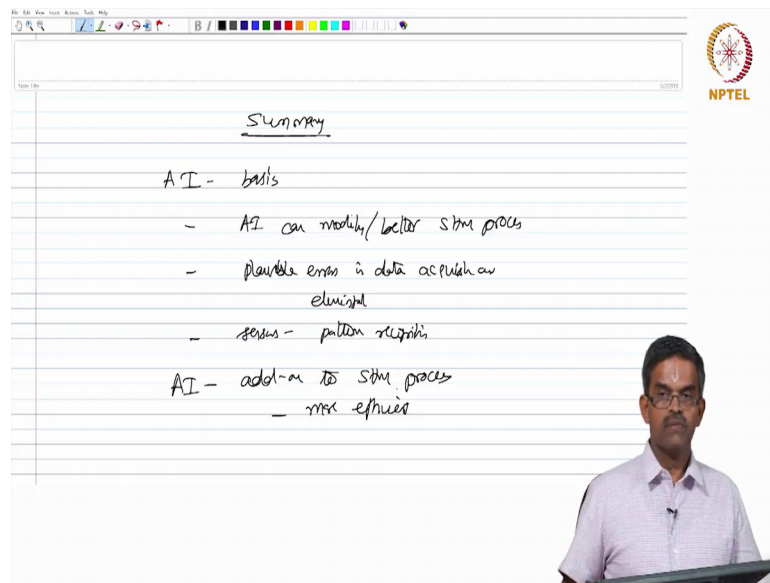 File Edit View Insert Actions Tools Help
B I
NPTEL
Note Title
Summary
AI - basis
- AI can modify/better SHM process
- plausible errors in data acquisition are
eliminated
- sensors - pattern recognition
AI - add-on to SHM process
- more efficient